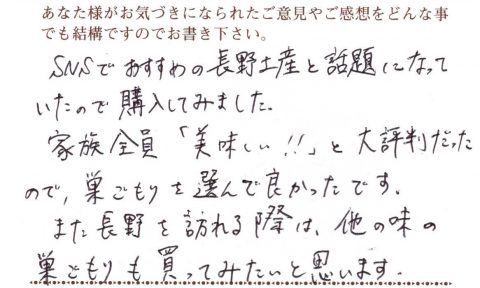 あなた様がお気づきになられたご意見やご感想をどんな事
でも結構ですのでお書き下さい。
SNSでおすすめの長野土産と話題になって
いたので購入してみました。
家族全員「美味しい!!」と大評判だった
ので、巣ごもりを選んで良かったです。
また長野を訪れる際は、他の味の
巣ごもりも買ってみたいと思います。